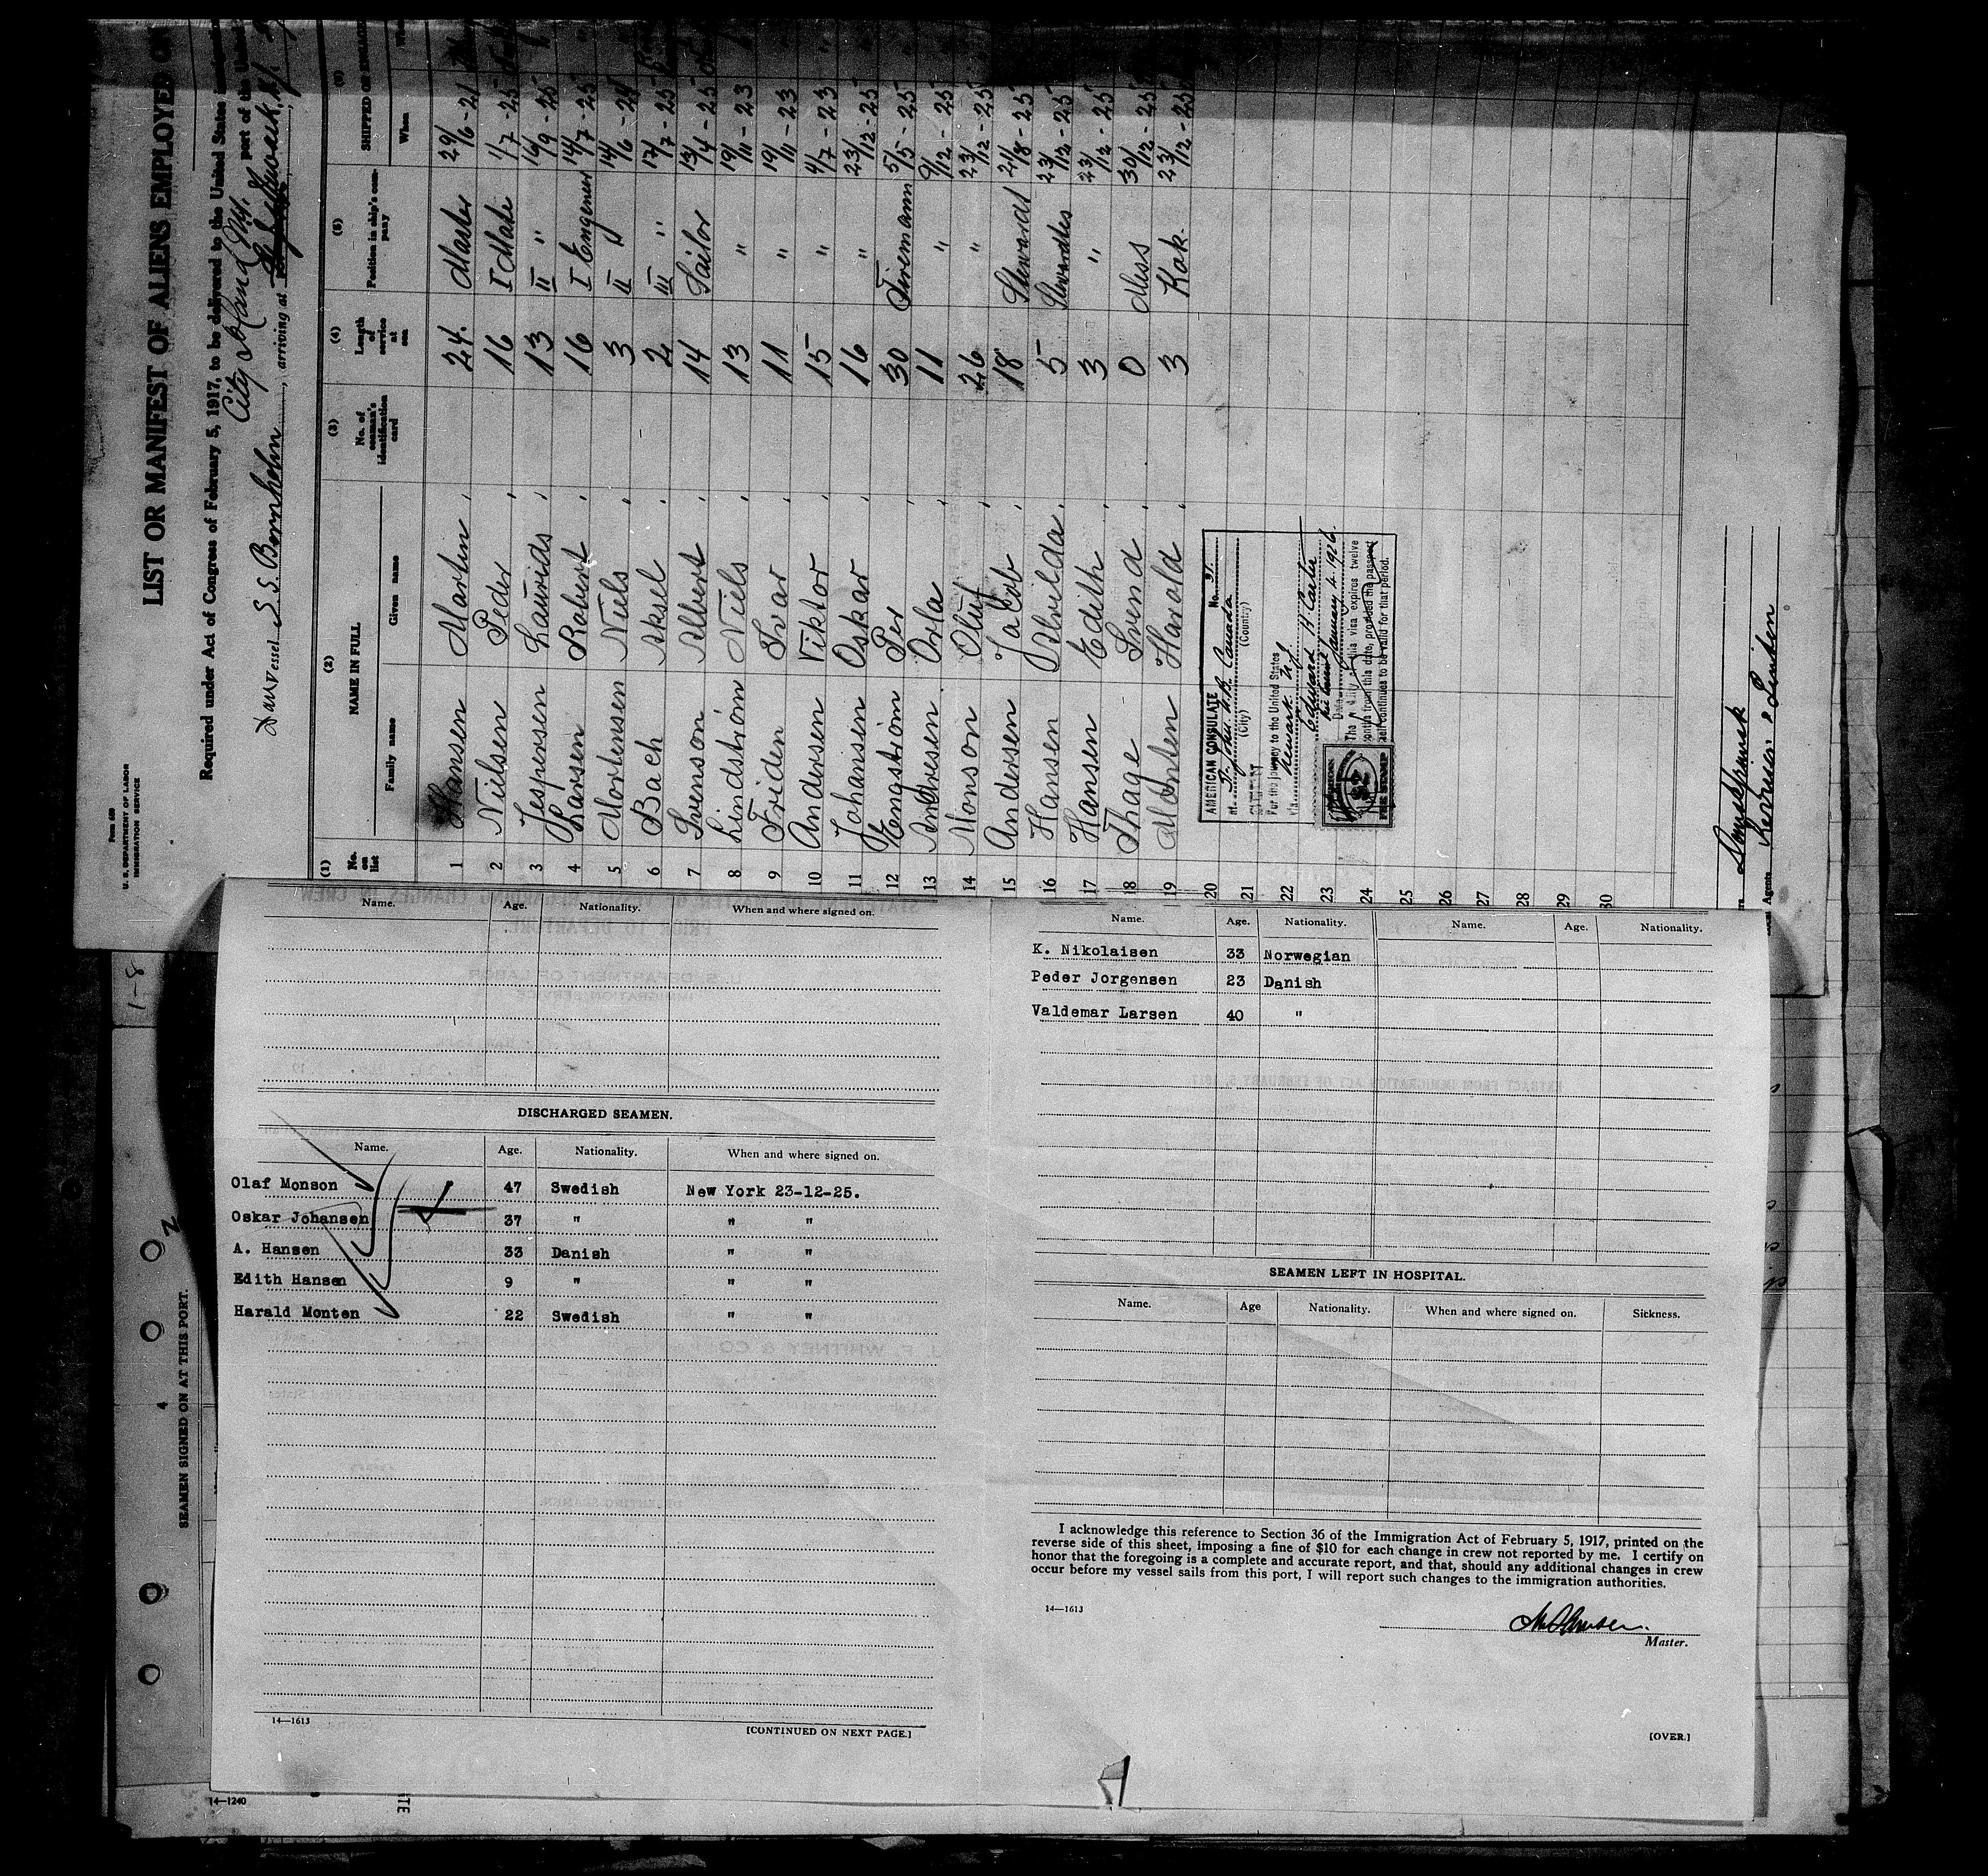 Form 689
U. S. DEPARTMENT OF LABOR
IMMIGRATION SERVICE
LIST OR MANIFEST OF ALIENS EMPLOYED ON
Required under Act of Congress of February 5, 1917, to be delivered to the United States
port of the United
Vessel S.S. Bornholm, arriving at
(1) (2) (3) (4) (5) (6)
No. on list NAME IN FULL No. of seaman's identification card Length of service at sea Position in ship's company SHIPPED OR ENGAGED
Family name Given name When
1 Hansen Martin 24. Master 29/6-21
2 Nielsen Peder 16 I Mate 1/7-25
3 Jespersen Laurids 13 II " 16/9-25
4 Larsen Robert 16 I Engener 14/7-25
5 Mortensen Niels 3 II " 14/6-24
6 Bach Aksel 2 III " 17/7-25
7 Svenson Albert 14 Sailor 13/4-25
8 Lindström Niels 13 " 19/11-23
9 Friden Ivar 11 " 19/11-23
10 Andersen Viktor 15 " 4/7-23
11 Johansen Oskar 16 " 23/12-25
12 Engström Per 30 Firemann 5/5-25
13 Andresen Orla 11 " 9/12-25
14 Monson Oluf 26 " 23/12-25
15 Andersen Jacob 18 Steward 21/8-25
16 Hansen Alvilda 5 Stewardes 23/12-25
17 Hansen Edith 3 " 23/12-25
18 Thage Svend 0 Mess 30/12-25
19 Monten Harald 3 Kok 23/12-25
20
21
22
23
24
25
26
27
28
29
30
AMERICAN CONSULATE
At St. John N.B. Canada No. 31
(City) (Country)
For the journey to the United States
Via Newark N.J.
Edward B Carter
Date January 4, 1926
The validity of this visa expires twelve
months from this date, provided the passport
itself continues to be valid for that period.
FEE STAMP
Agents
1-8
SEAMEN SIGNED ON AT THIS PORT.
4
14—1240
Name. Age. Nationality. When and where signed on.
DISCHARGED SEAMEN.
Name. Age. Nationality. When and where signed on.
Olaf Monson 47 Swedish New York 23-12-25.
Oskar Johansen 37 " " "
A. Hansen 33 Danish " "
Edith Hansen 9 " " "
Harald Monten 22 Swedish " "
14—1613
[CONTINUED ON NEXT PAGE.]
Name. Age. Nationality. Name. Age. Nationality.
K. Nikolaisen 33 Norwegian
Peder Jorgensen 23 Danish
Valdemar Larsen 40 "
SEAMEN LEFT IN HOSPITAL.
Name. Age Nationality. When and where signed on. Sickness.
I acknowledge this reference to Section 36 of the Immigration Act of February 5, 1917, printed on the
reverse side of this sheet, imposing a fine of $10 for each change in crew not reported by me. I certify on
honor that the foregoing is a complete and accurate report, and that, should any additional changes in crew
occur before my vessel sails from this port, I will report such changes to the immigration authorities.
14—1613
Master.
[OVER.]